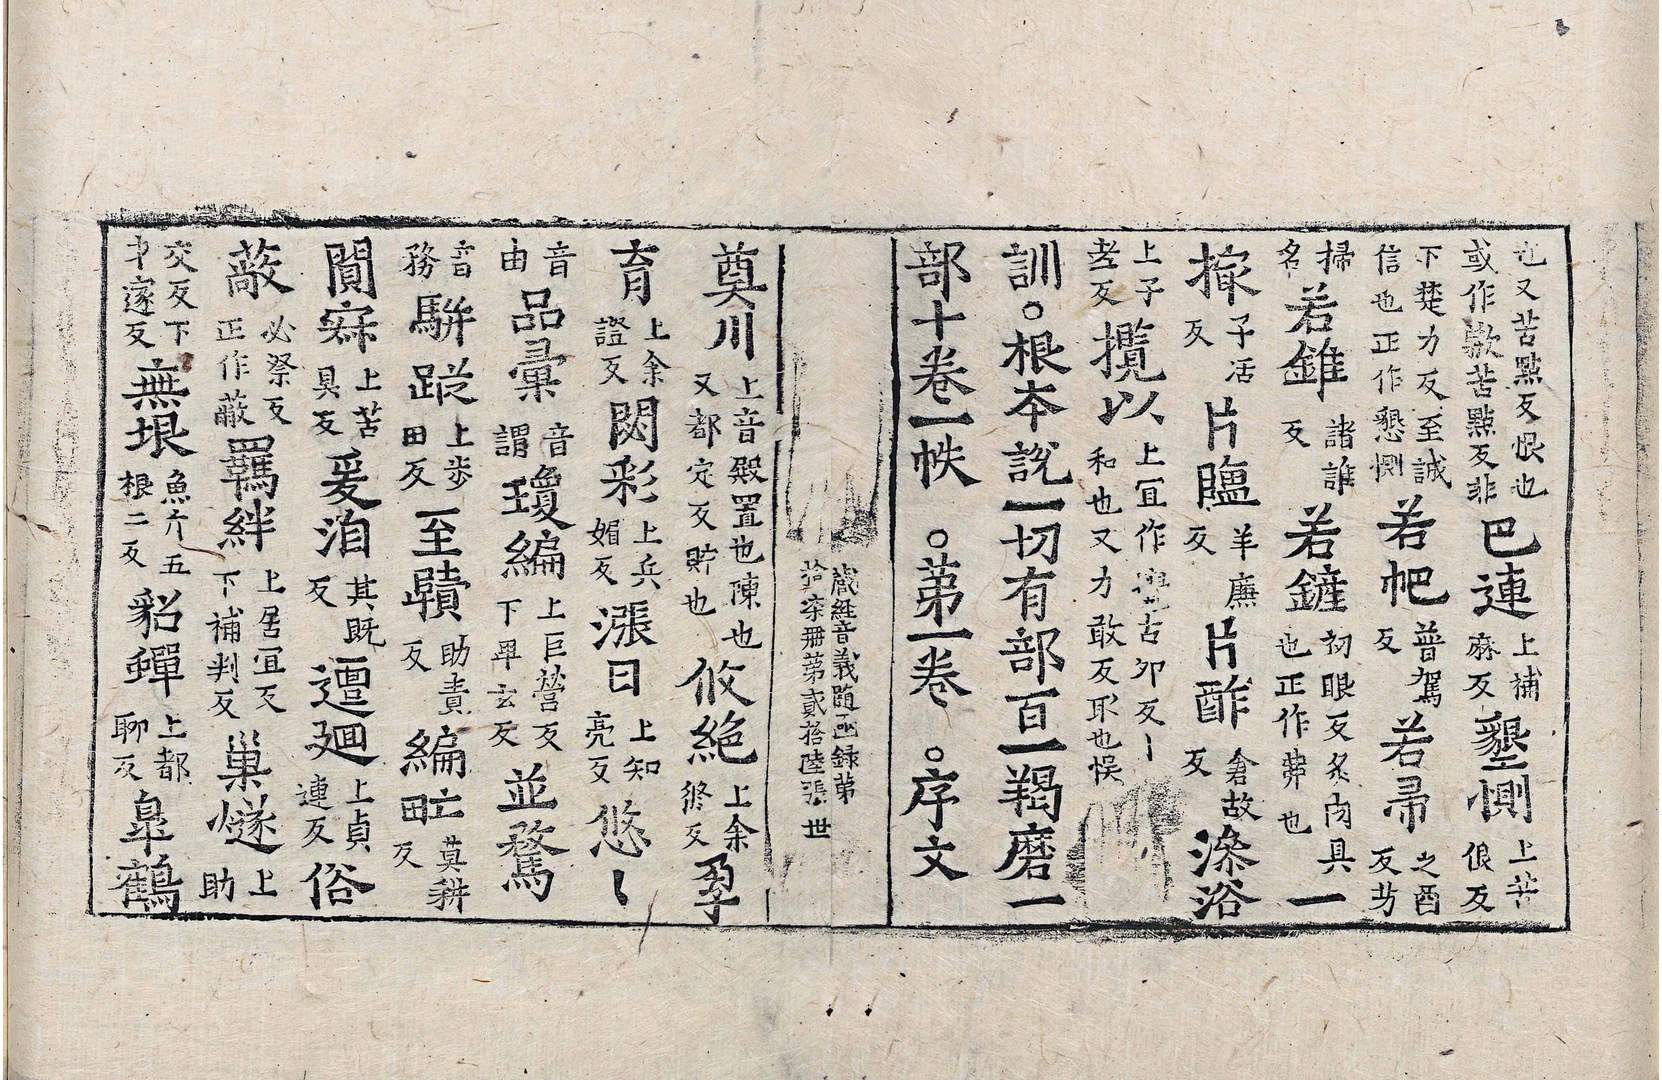 也又苦點反恨也或作歁苦點反非巴連上補麻反墾惻上苦佷反
下楚力反至誠信也正作懇惻若杷普駕反若帚之酉反艻
掃名若錐諸誰反若鏟初眼反炙肉具也正作弗也一
㩆子活反片䀋羊廉反片酢倉故反滌浴
上子孝反攬以上宜作古卯反丨和也又力敢反取也悮
訓○根夲說一切有部百一羯磨一
部十卷一帙○苐一卷○序文
藏經音義随函録苐拾柒册苐貳拾陸張 世
奠川上音殿置也陳也又都定反貯也攸絶上余𠋣反孕
育上余證反閃彩上兵媚反漲日上知亮反悠丨
音由品彙音謂瓊編上巨營反下畢玄反並騖
音務駢蹤上步田反至賾助責反編甿莫耕反
閴寂上苦具反爰洎其既反邅迴上貞連反俗
蔽必祭反正作蔽羈絆上居宜反下補判反巢燧上助
交反下巾邃反無垠魚斤五根二反貂蟬上都聊反皐鶴